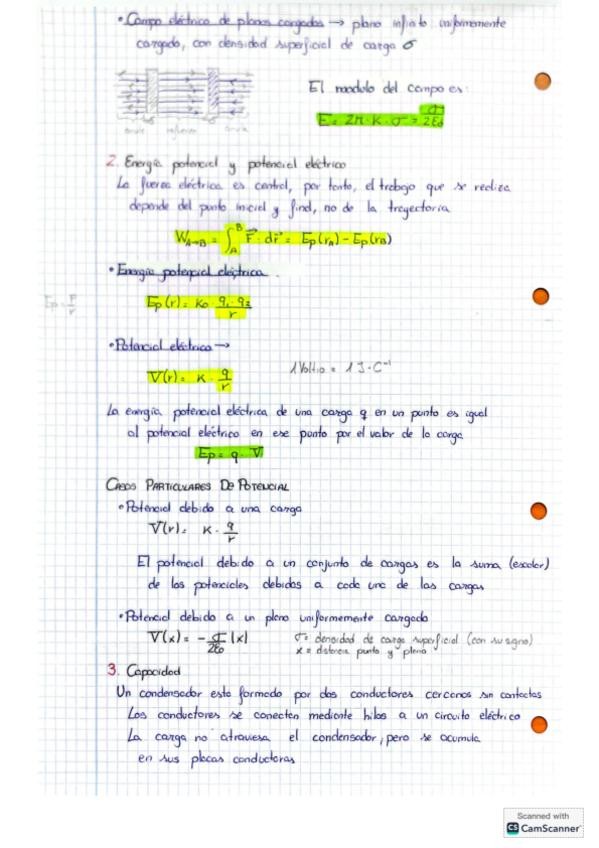 • Campo eléctrico de planos cargados → plano infinito uniformemente
cargado, con densidad superficial de carga σ
El modulo del campo es:
E = 2π · K · σ = σ/2ε₀
anula refuerza anula
2. Energía potencial y potencial eléctrico
La fuerza eléctrica es central, por tanto, el trabajo que se realiza
depende del punto inicial y final, no de la trayectoria
W A→B = ∫ᴬᴮ F⃗ · dr⃗ = Ep(rA) - Ep(rB)
• Energía potencial eléctrica.
Ep(r) = K₀ · q₁ · q₂ / r
• Potencial eléctrico →
1 Voltio = 1 J · C⁻¹
V(r) = K · q/r
La energía potencial eléctrica de una carga q en un punto es igual
al potencial eléctrico en ese punto por el valor de la carga
Ep = q · V
CASOS PARTICULARES DE POTENCIAL
• Potencial debido a una carga
V(r) = K · q/r
El potencial debido a un conjunto de cargas es la suma (escalar)
de los potenciales debidos a cada una de las cargas
• Potencial debido a un plano uniformemente cargado
V(x) = - σ/2ε₀ |x|
σ = densidad de carga superficial (con su signo)
x = distancia punto y plano
3. Capacidad
Un condensador esta formado por dos conductores cercanos sin contactos
Los conductores se conectan mediante hilos a un circuito eléctrico
La carga no atraviesa el condensador, pero se acumula
en sus placas conductoras
Scanned with
CS CamScanner